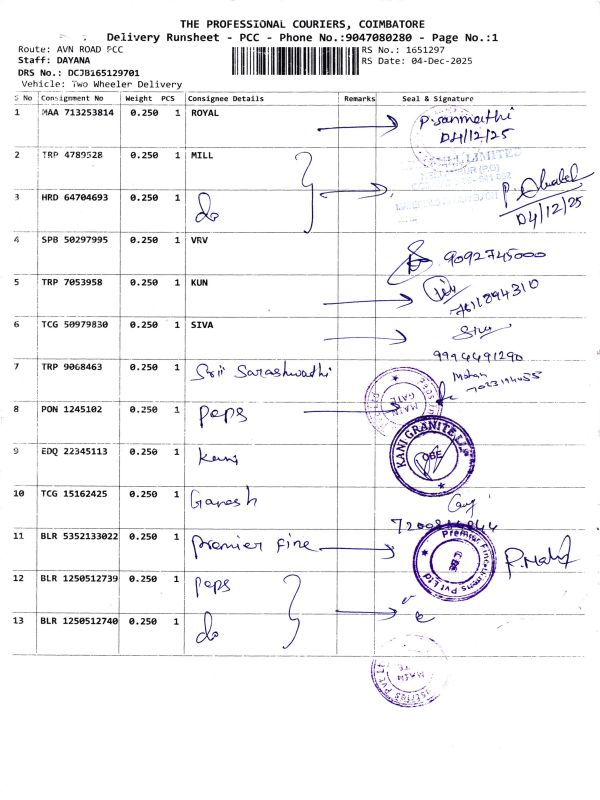 THE PROFESSIONAL COURIERS, COIMBATORE
Delivery Runsheet - PCC - Phone No.:9047080280 - Page No.:1
Route: AVN ROAD PCC RS No.: 1651297
Staff: DAYANA RS Date: 04-Dec-2025
DRS No.: DCJB165129701
Vehicle: Two Wheeler Delivery
S No Consignment No Weight PCS Consignee Details Remarks Seal & Signature
1 MAA 713253814 0.250 1 ROYAL P. Sanmathi
04/12/25
2 TRP 4789528 0.250 1 MILL LIMITED
3 HRD 64704693 0.250 1 do
04/12/25
4 SPB 50297995 0.250 1 VRV 9092745000
5 TRP 7053958 0.250 1 KUN
6 TCG 50979830 0.250 1 SIVA Siva
7 TRP 9068463 0.250 1 Srii Sarashwadhi
8 PON 1245102 0.250 1 peps MAIN GATE
9 EDQ 22345113 0.250 1 Kani KANI GRANITE
10 TCG 15162425 0.250 1 Ganesh
11 BLR 5352133022 0.250 1 premier fine Premier Pvt Ltd
12 BLR 1250512739 0.250 1 peps
13 BLR 1250512740 0.250 1 do
MAIN